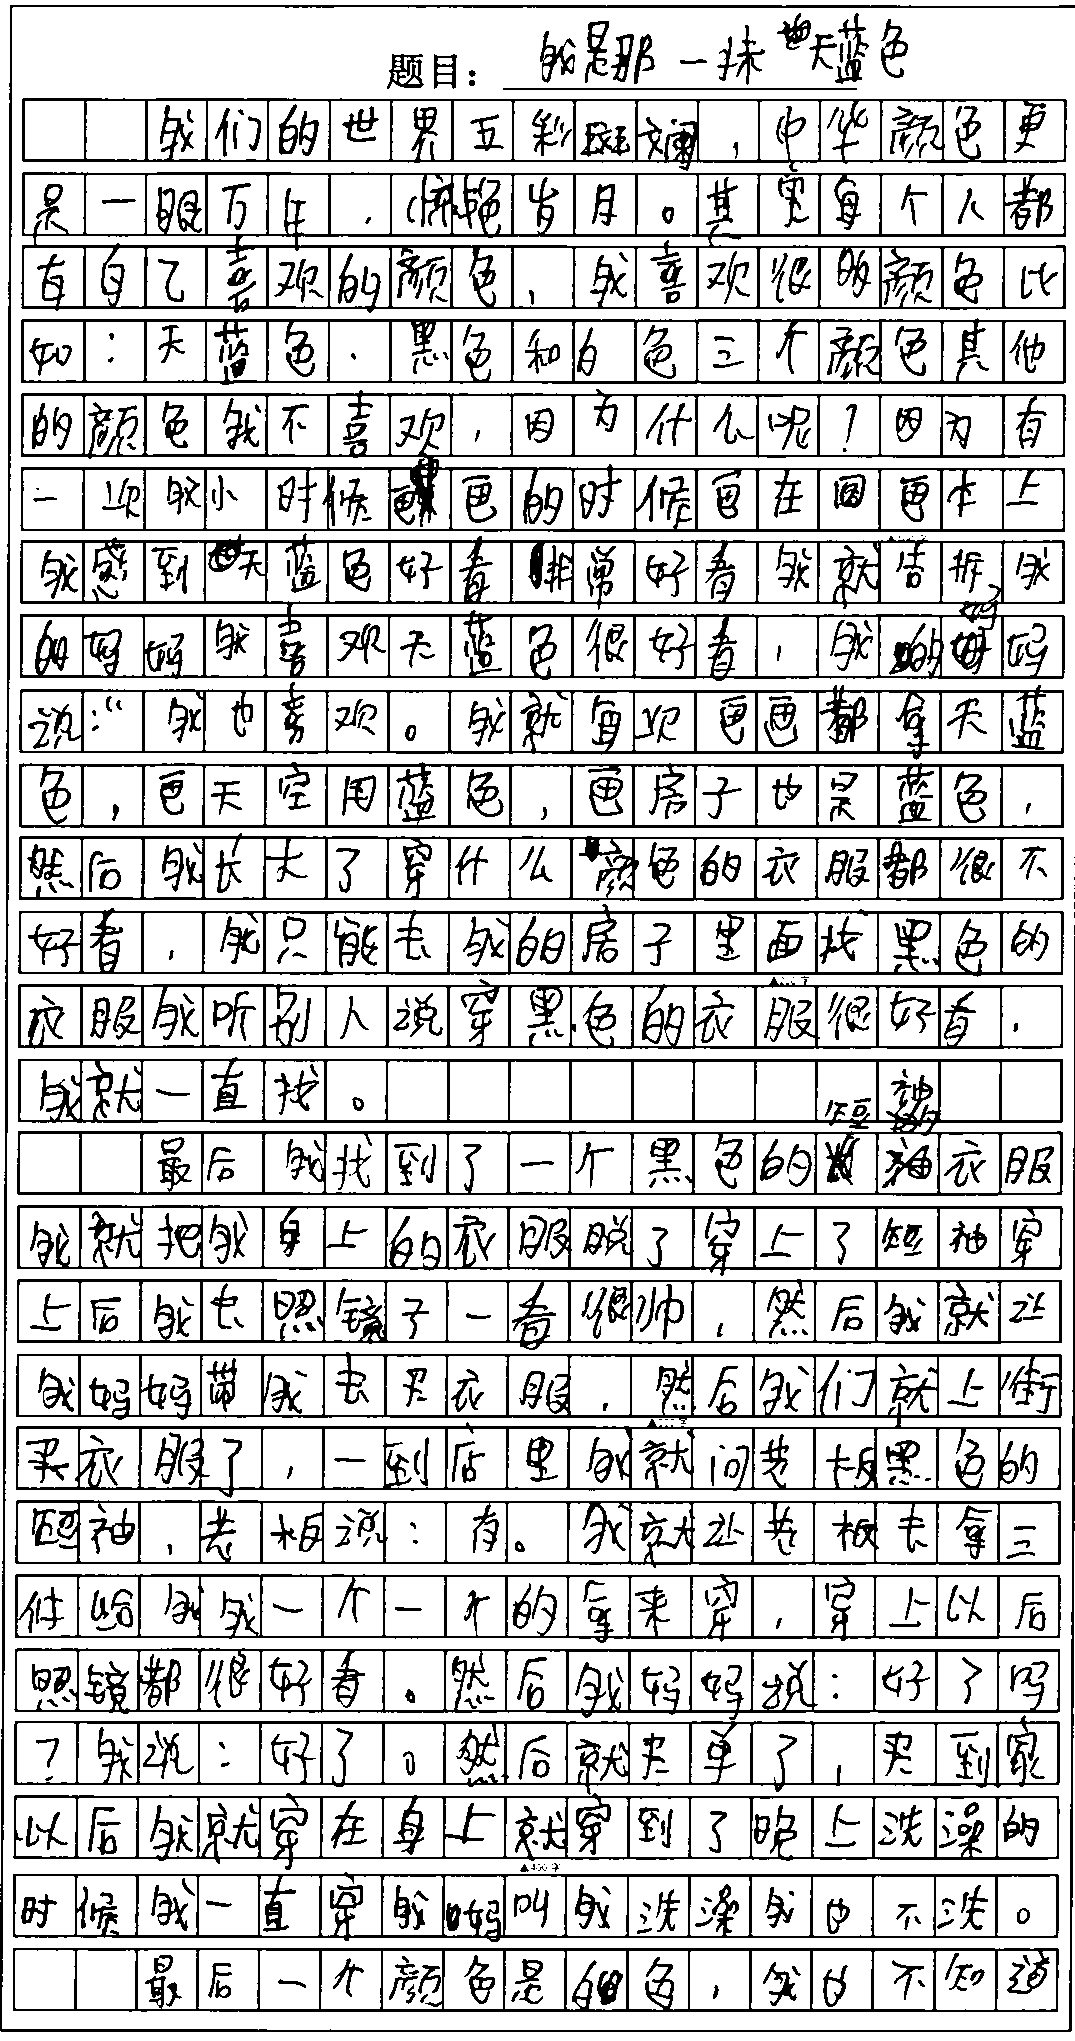 题目：我是那一抹天蓝色
我们的世界五彩斑斓，中华颜色更
是一眼万年，惊艳岁月。其实每个人都
有自己喜欢的颜色，我喜欢很的颜色比
如：天蓝色、黑色和白色三个颜色其他
的颜色我不喜欢，因为什么呢？因为有
一次我小时候画画的时候画在图画本上
我感到天蓝色好看非常好看我就告拆我
的妈妈我喜欢天蓝色很好看，我的妈妈
说：“我也喜欢。我就每次画画都拿天蓝
色，画天空用蓝色，画房子也是蓝色，
然后我长大了穿什么颜色的衣服都很不
好看，我只能去我的房子里面找黑色的
衣服我听别人说穿黑色的衣服很好看，
我就一直找。
最后我找到了一个黑色的短袖衣服
我就把我身上的衣服脱了穿上了短袖穿
上后我去照镜子一看很帅，然后我就让
我妈妈带我去买衣服，然后我们就上街
买衣服了，一到店里我就问老板黑色的
短袖，老板说：有。我就让老板去拿三
件给我我一个一个的拿来穿，穿上以后
照镜都很好看。然后我妈妈说：好了吗
？我说：好了。然后就买单了，买到家
以后我就穿在身上就穿到了晚上洗澡的
时候我一直穿我妈叫我洗澡我也不洗。
最后一个颜色是白色，我也不知道